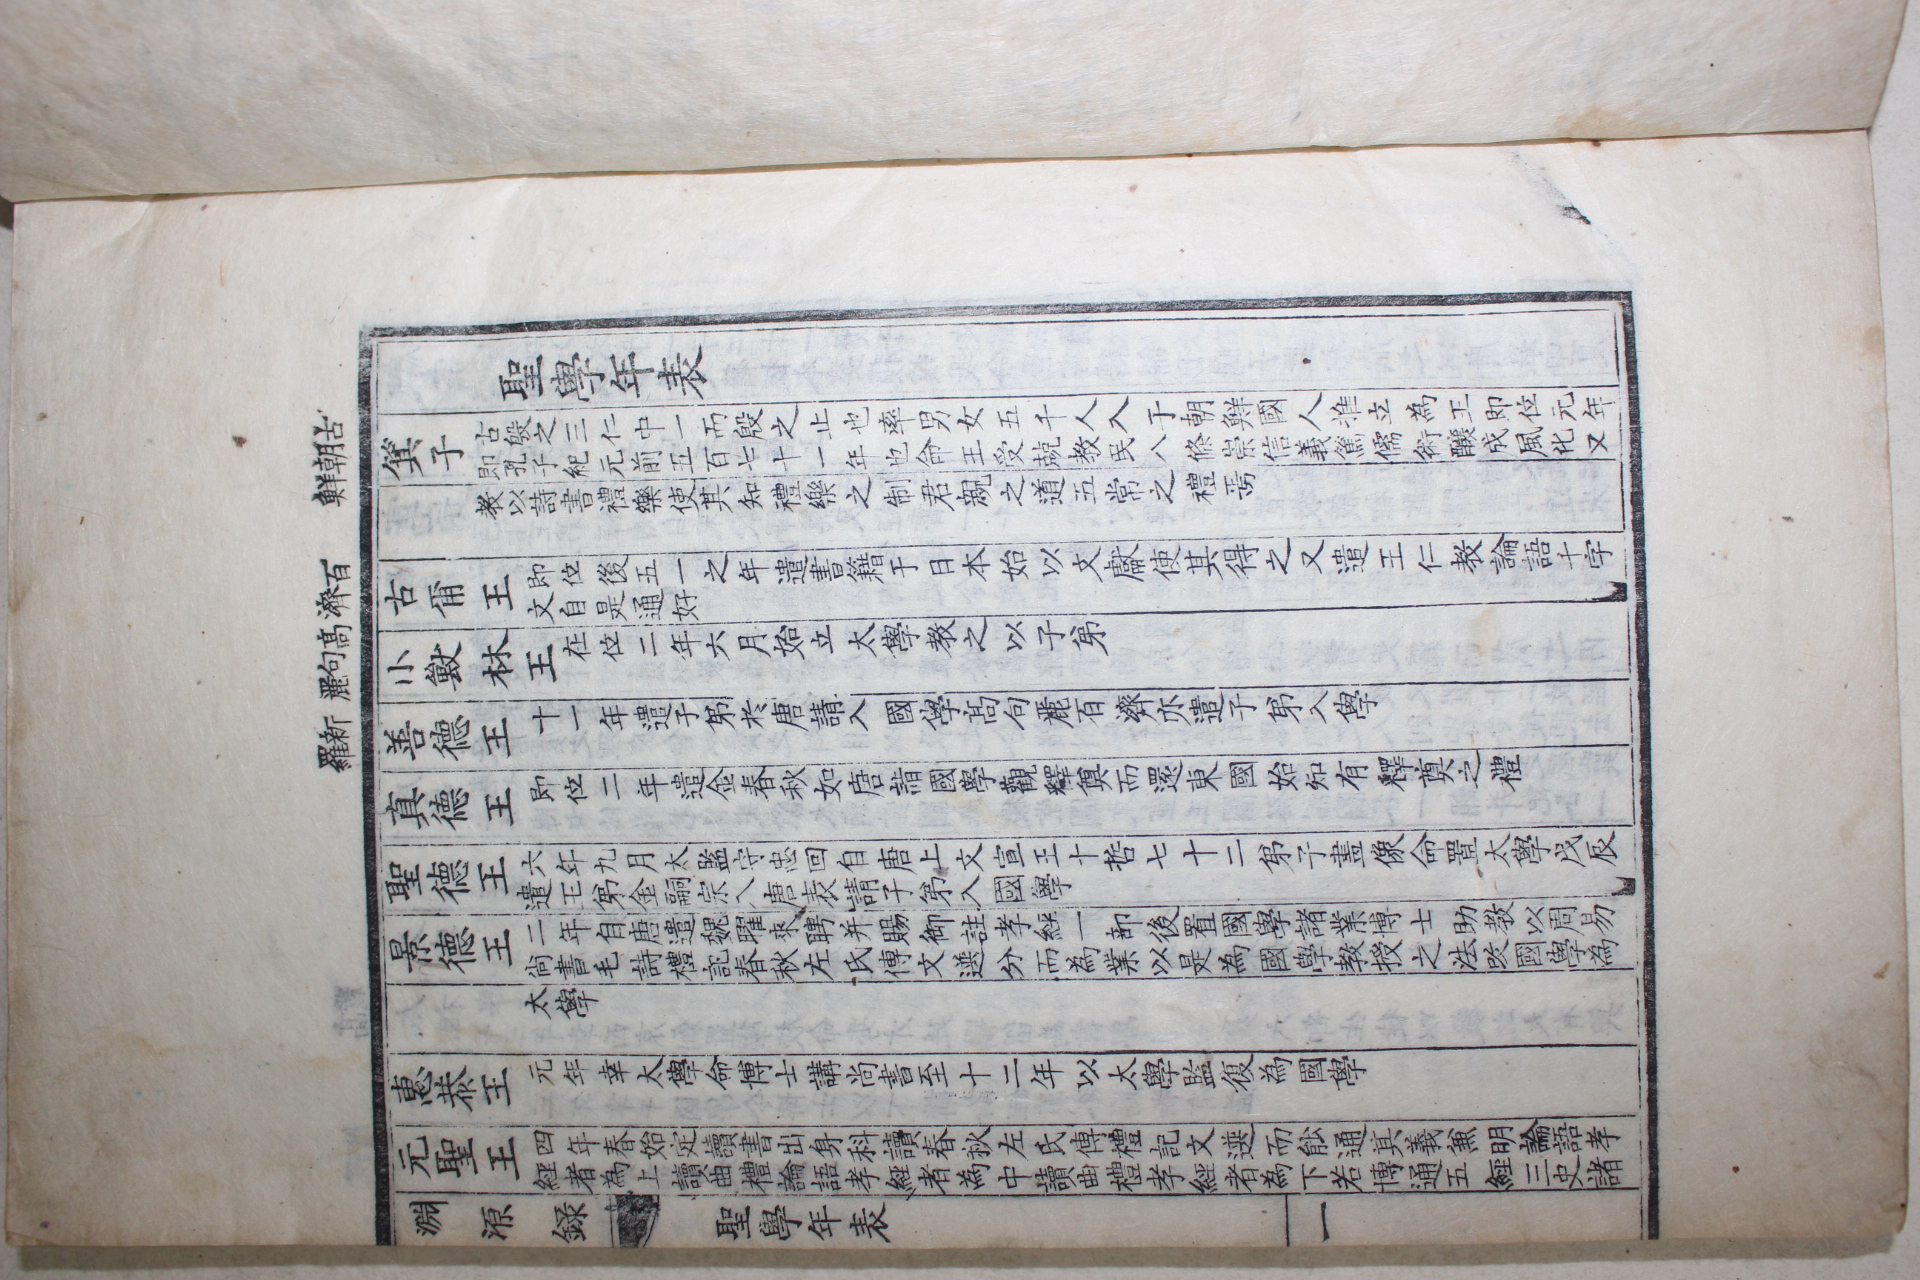 古朝鮮
百濟
高句麗
新羅
聖學年表
箕子 古殷之三仁中一而殷之止也率男女五千人入于朝鮮國人推立為王即位元年
即孔子紀元前五百七十一年也命王受兢教民八條崇信義篤儒術釀成風化又
教以詩書禮樂使其知禮樂之制君親之道五常之禮焉
古甭王 即位後五一之年遣書籍于日本始以文獻使其得之又遣王仁教論語千字
文自是通好
小獸林王 在位二年六月始立太學教之以子弟
善德王 十一年遣子弟於唐請入國學高句麗百濟亦遣子弟入學
真德王 即位二年遣金春秋如唐詣國學觀釋奠而還東國始知有釋奠之禮
聖德王 六年九月太監守忠回自唐上文宣王十哲七十二弟子畫像命置太學戊辰
遣王弟金嗣宗入唐表請子弟入國學
景德王 二年自唐遣魏曜來聘并賜御註孝經一部後置國學諸業博士助教以周易
尚書毛詩禮記春秋左氏傳文選分而為業以是為國學教授之法改國學為
太學
惠恭王 元年幸太學命博士講尚書至十二年以太學監復為國學
元聖王 四年春始定讀書出身科讀春秋左氏傳禮記文選而能通其義兼明論語孝
經者為上讀曲禮論語孝經者為中讀曲禮孝經者為下若博通五經三史諸
淵源錄 聖學年表 一